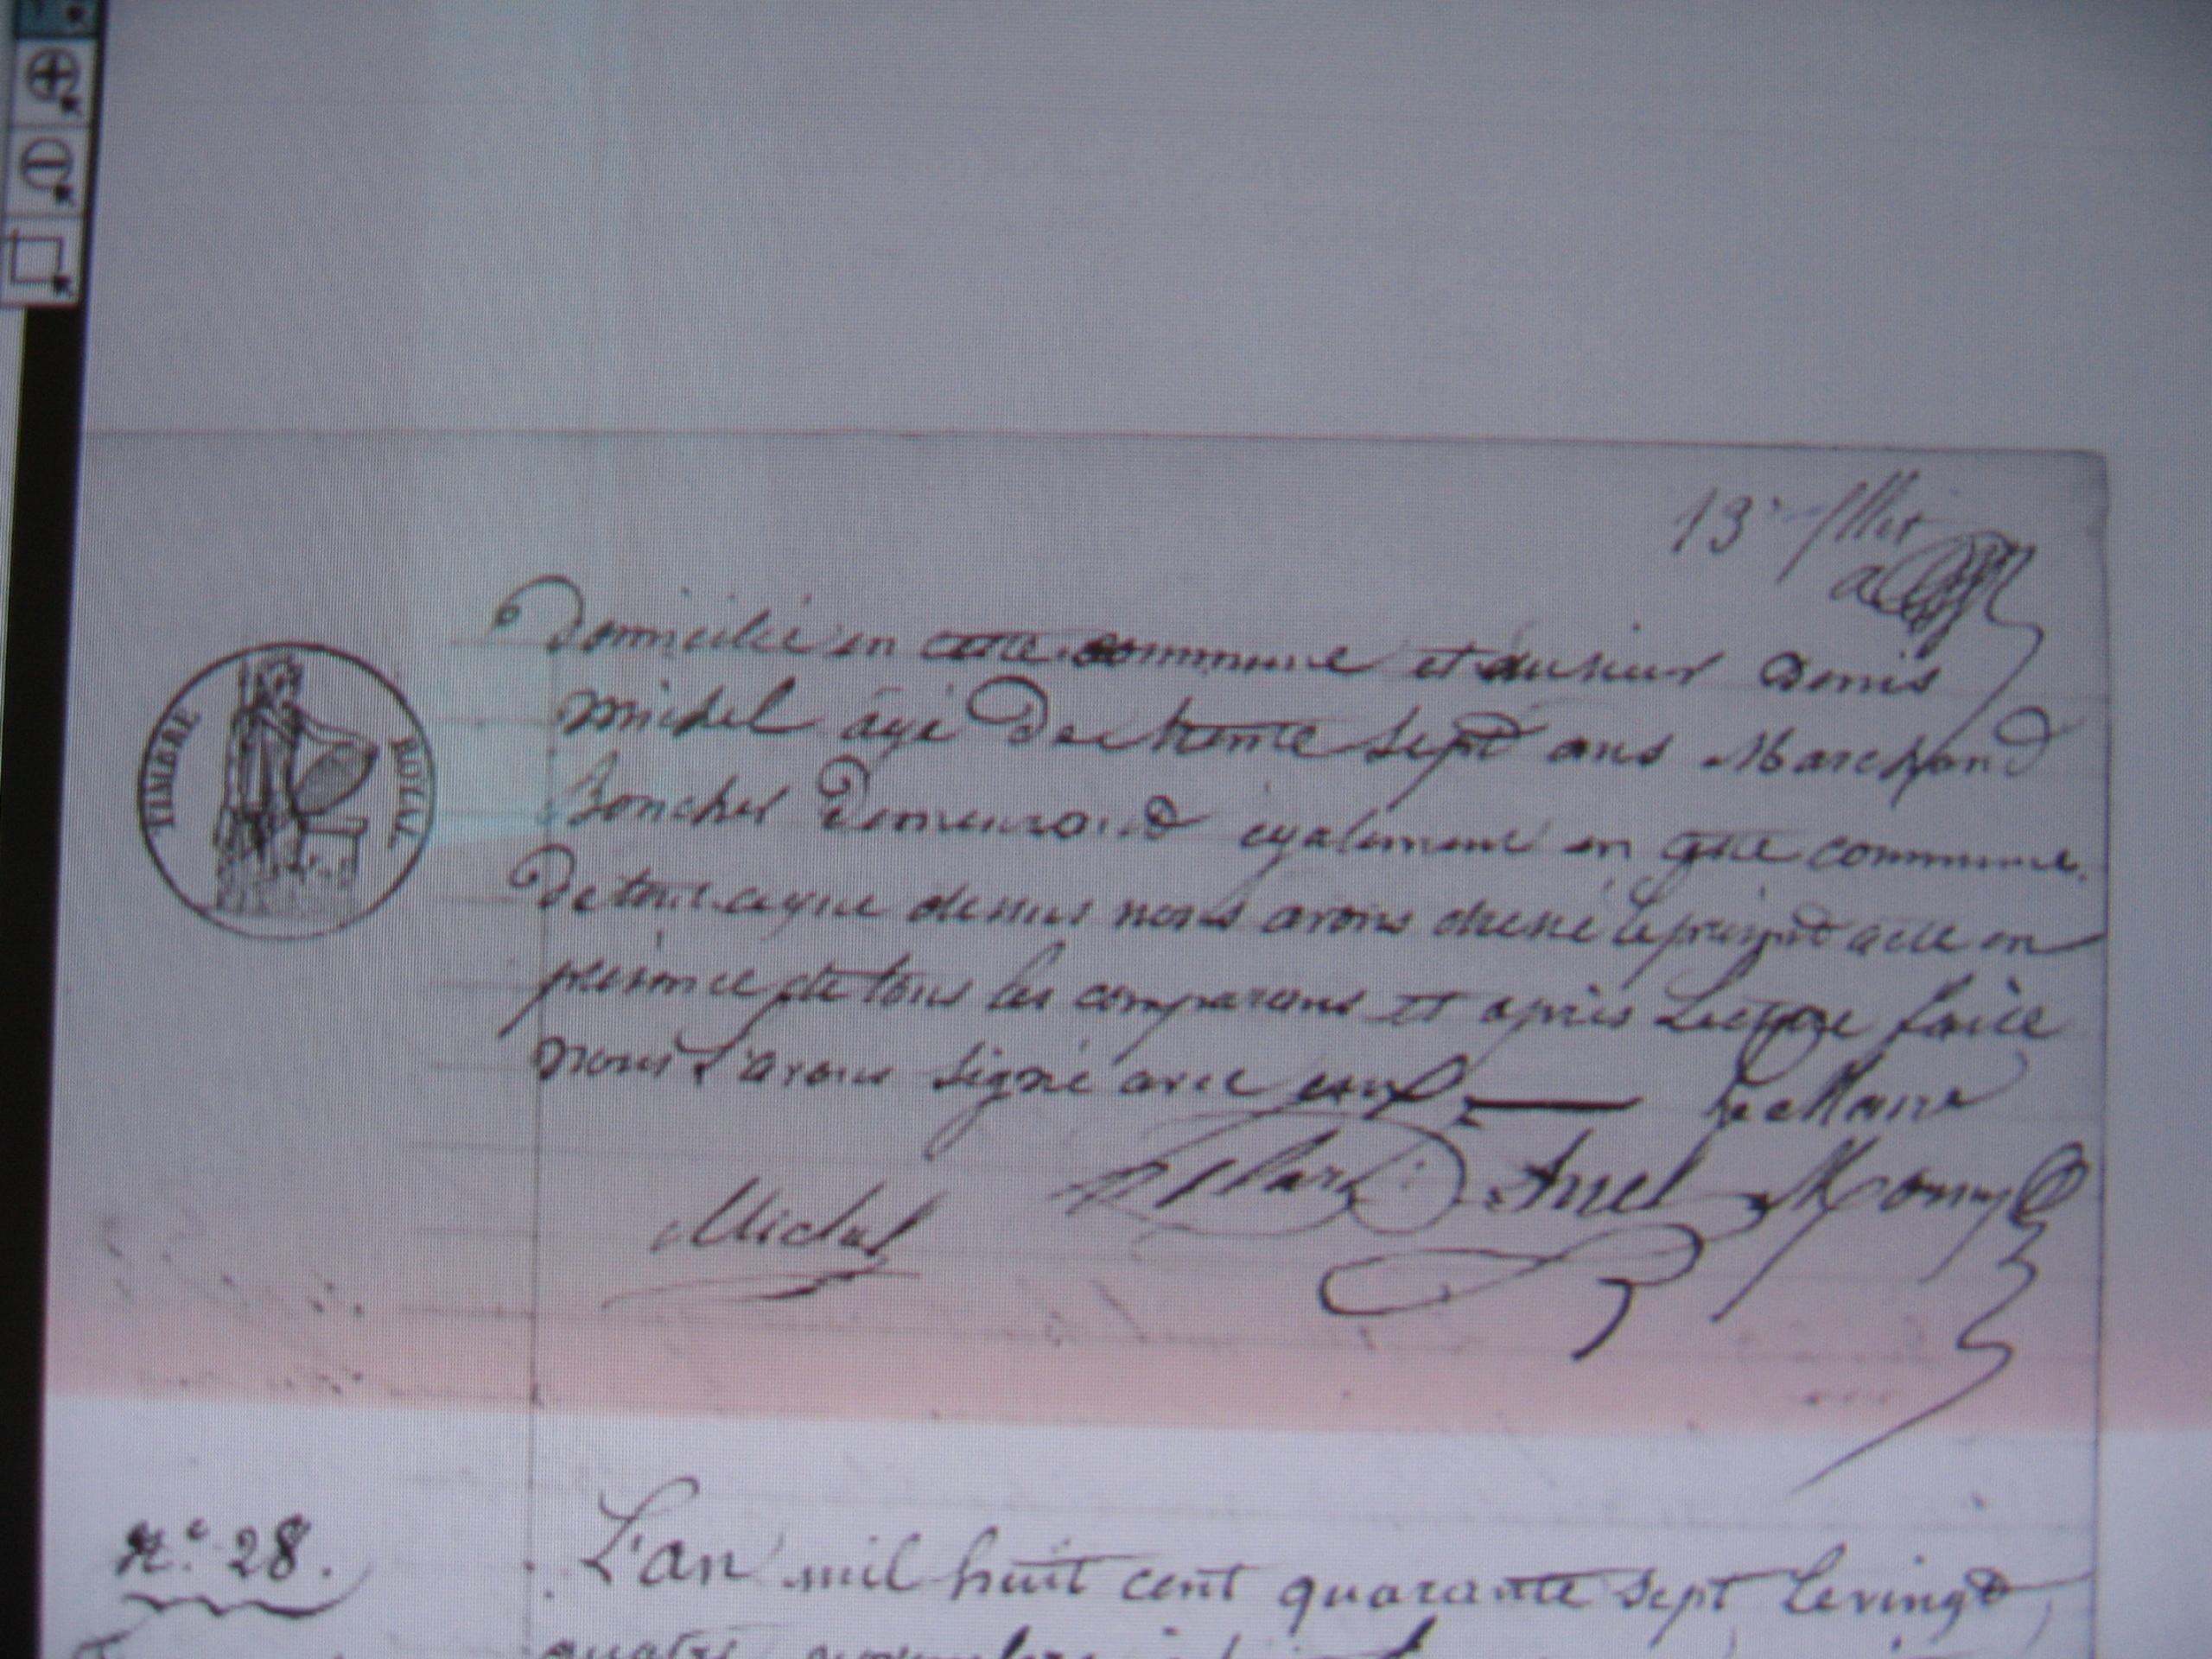 13e
TIMBRE ROYAL
Domicilié en cette commune et du sieur Denis
Michel âgé de trente sept ans Marchand
Boucher Demeurand également en cette commune.
De tout ce que dessus nous avons dressé le présent acte en
présence de tous les comparans et après Lecture faite
nous l'avons signé avec eux — Le Maire
Michel
n.° 28.
L'an mil huit cent quarante sept le vingt
quatre